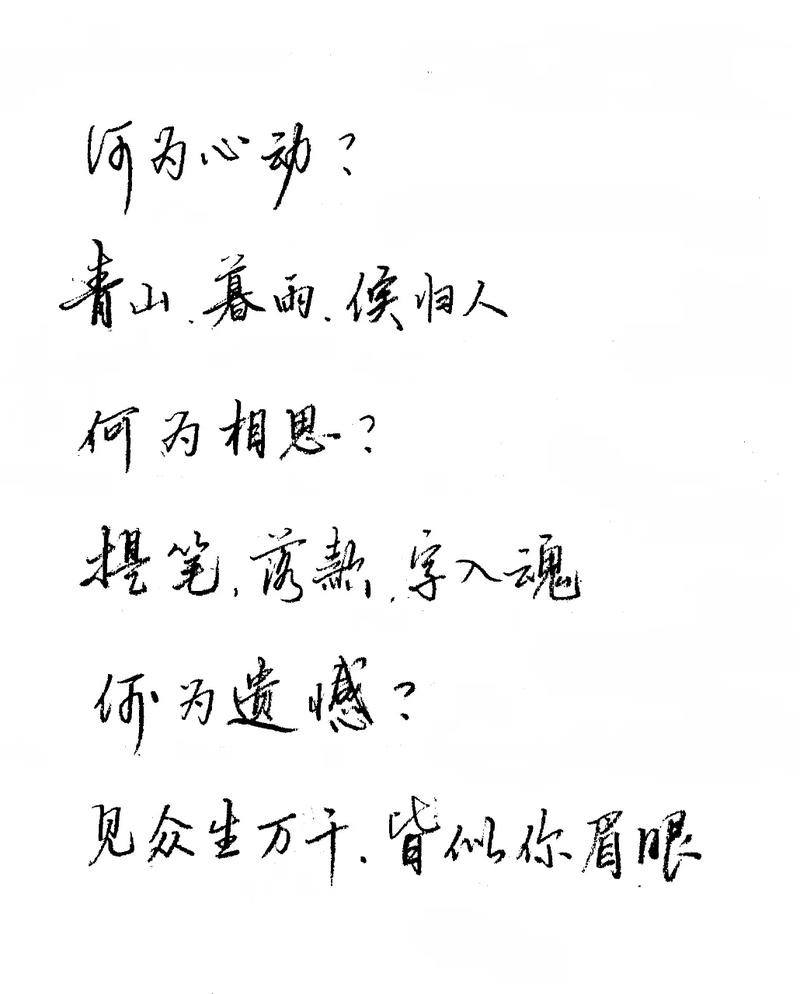 何为心动?
青山.暮雨.候归人
何为相思?
提笔.落款.字入魂
何为遗憾?
见众生万千.皆似你眉眼